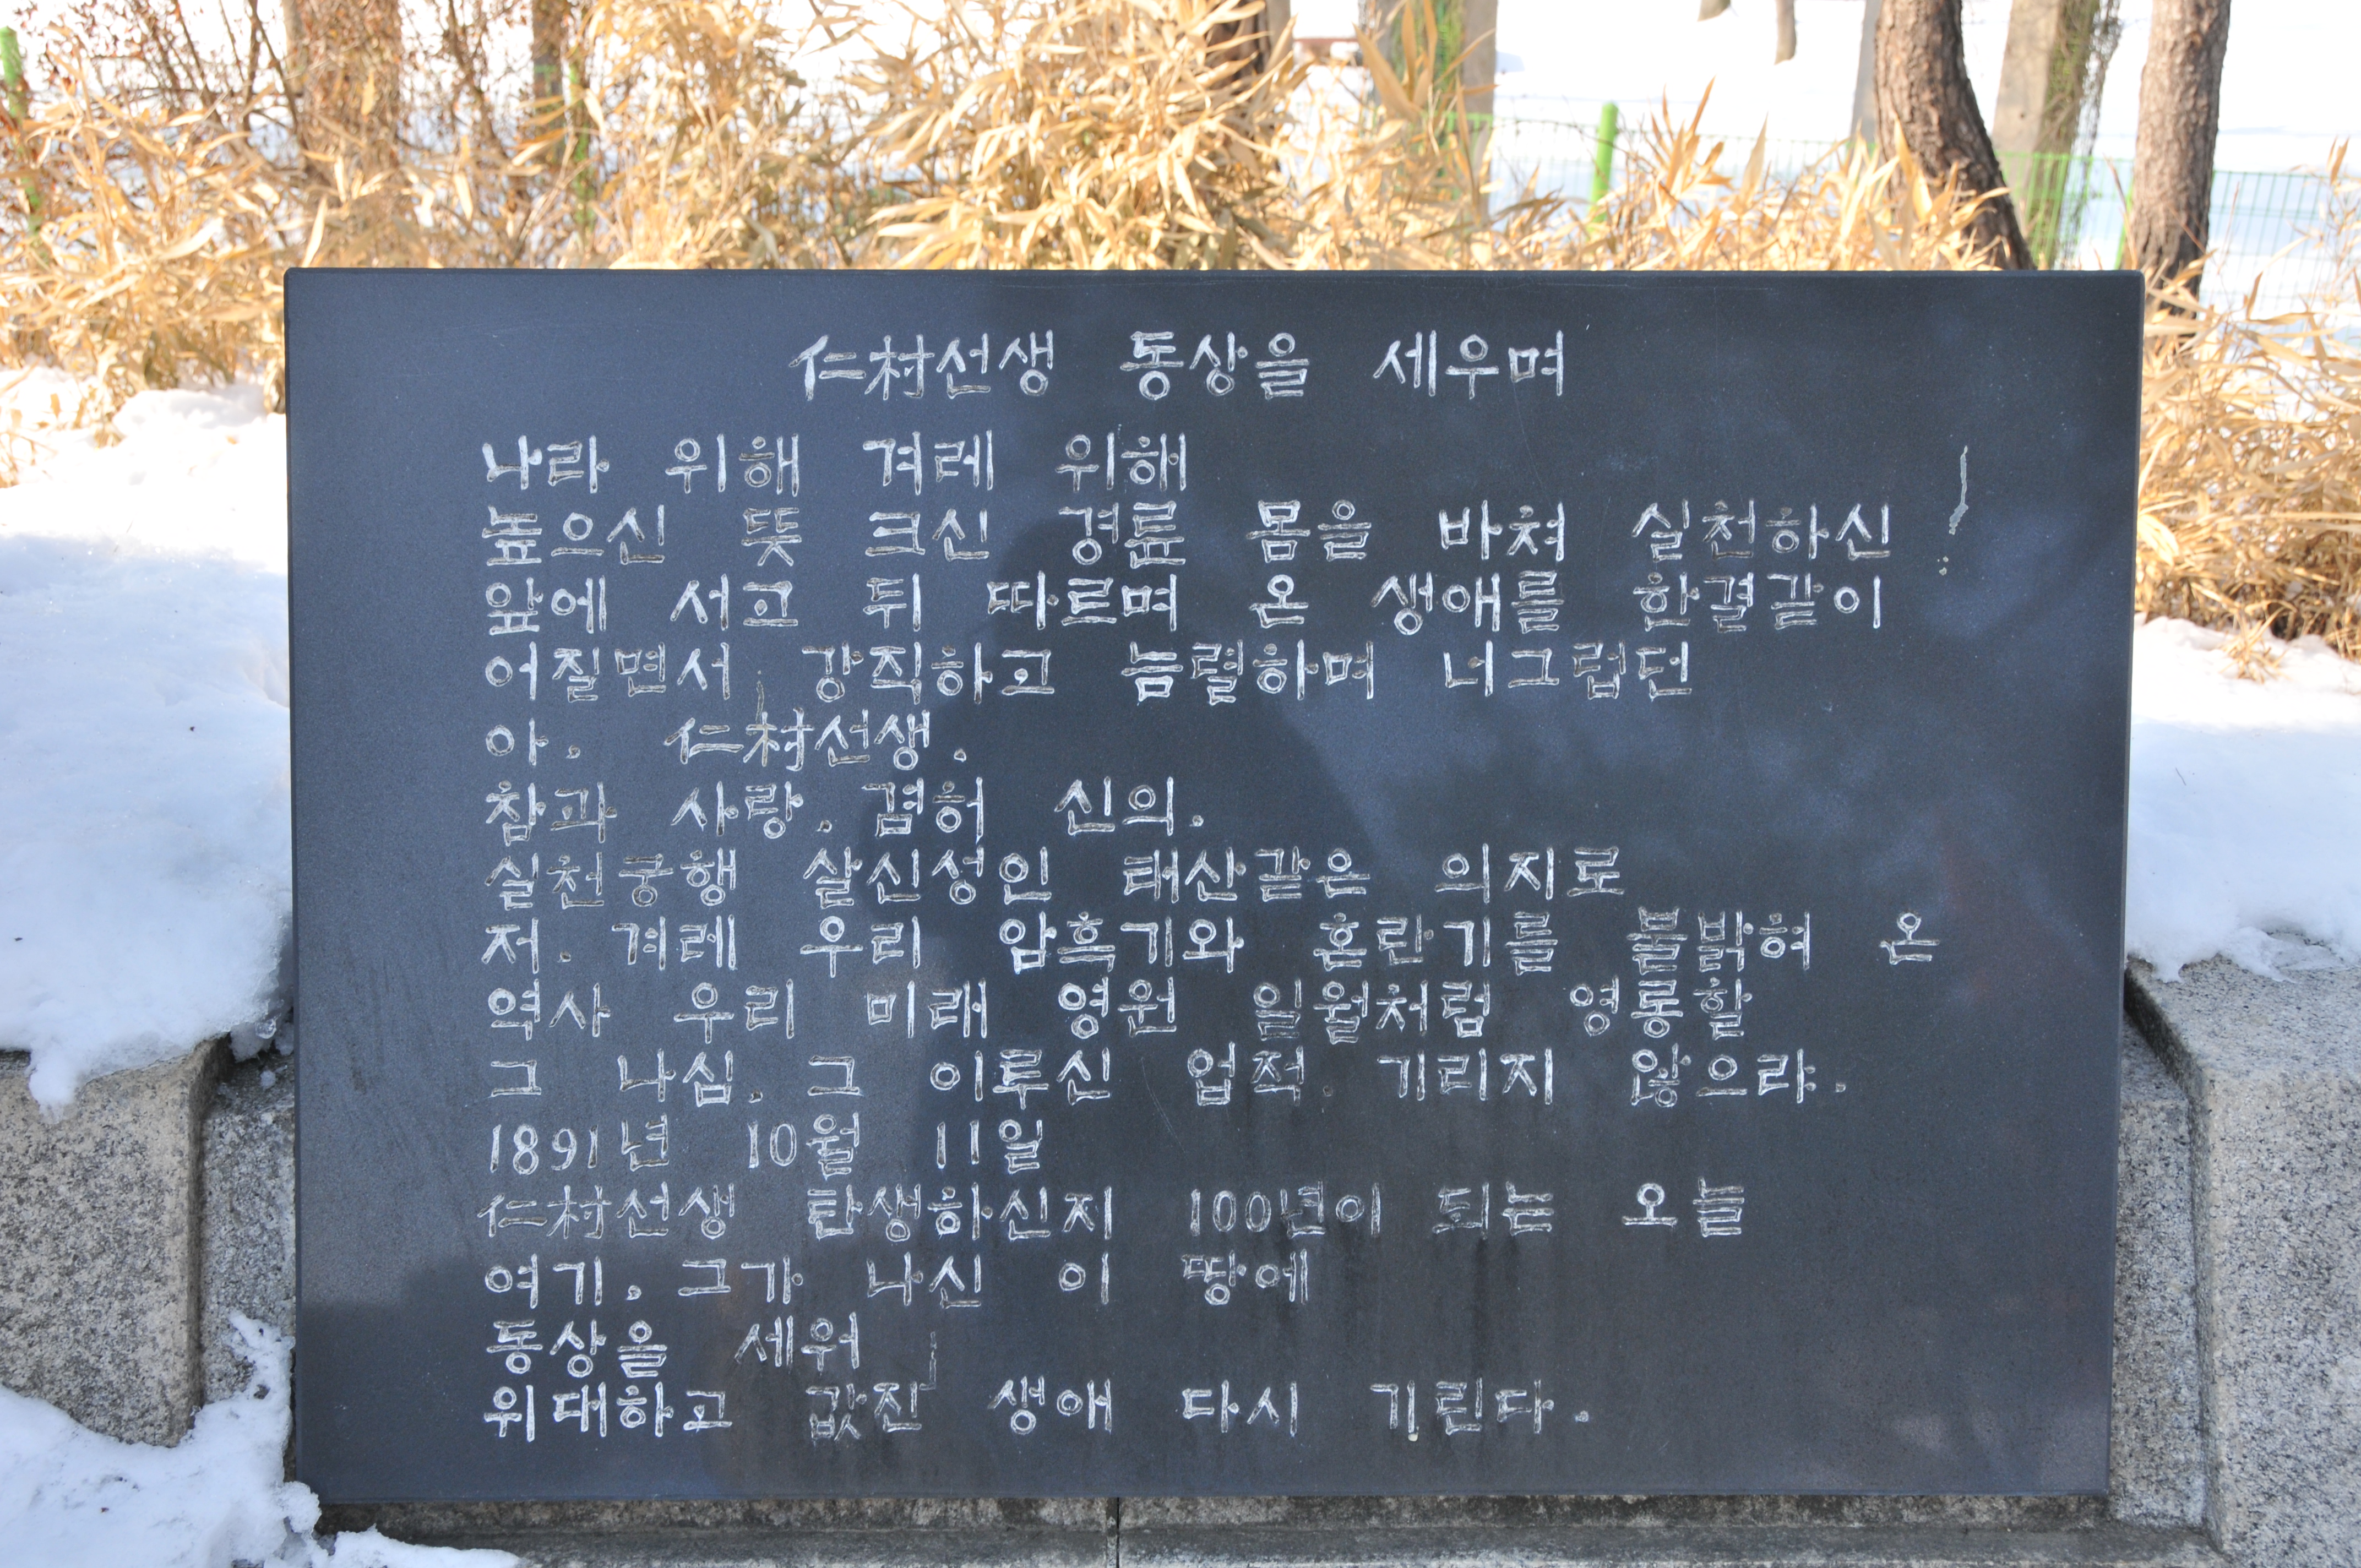 仁村선생 동상을 세우며
나라 위해 겨레 위해
높으신 뜻 크신 경륜 몸을 바쳐 실천하신
앞에 서고 뒤 따르며 온 생애를 한결같이
어질면서 강직하고 늠렬하며 너그럽던
아. 仁村선생.
참과 사랑. 겸허 신의.
실천궁행 살신성인 태산같은 의지로
저. 겨레 우리 암흑기와 혼란기를 불밝혀 온
역사 우리 미래 영원 일월처럼 영롱할
그 나심. 그 이루신 업적. 기리지 않으랴.
1891년 10월 11일
仁村선생 탄생하신지 100년이 되는 오늘
여기. 그가 나신 이 땅에
동상을 세워
위대하고 값진 생애 다시 기린다.